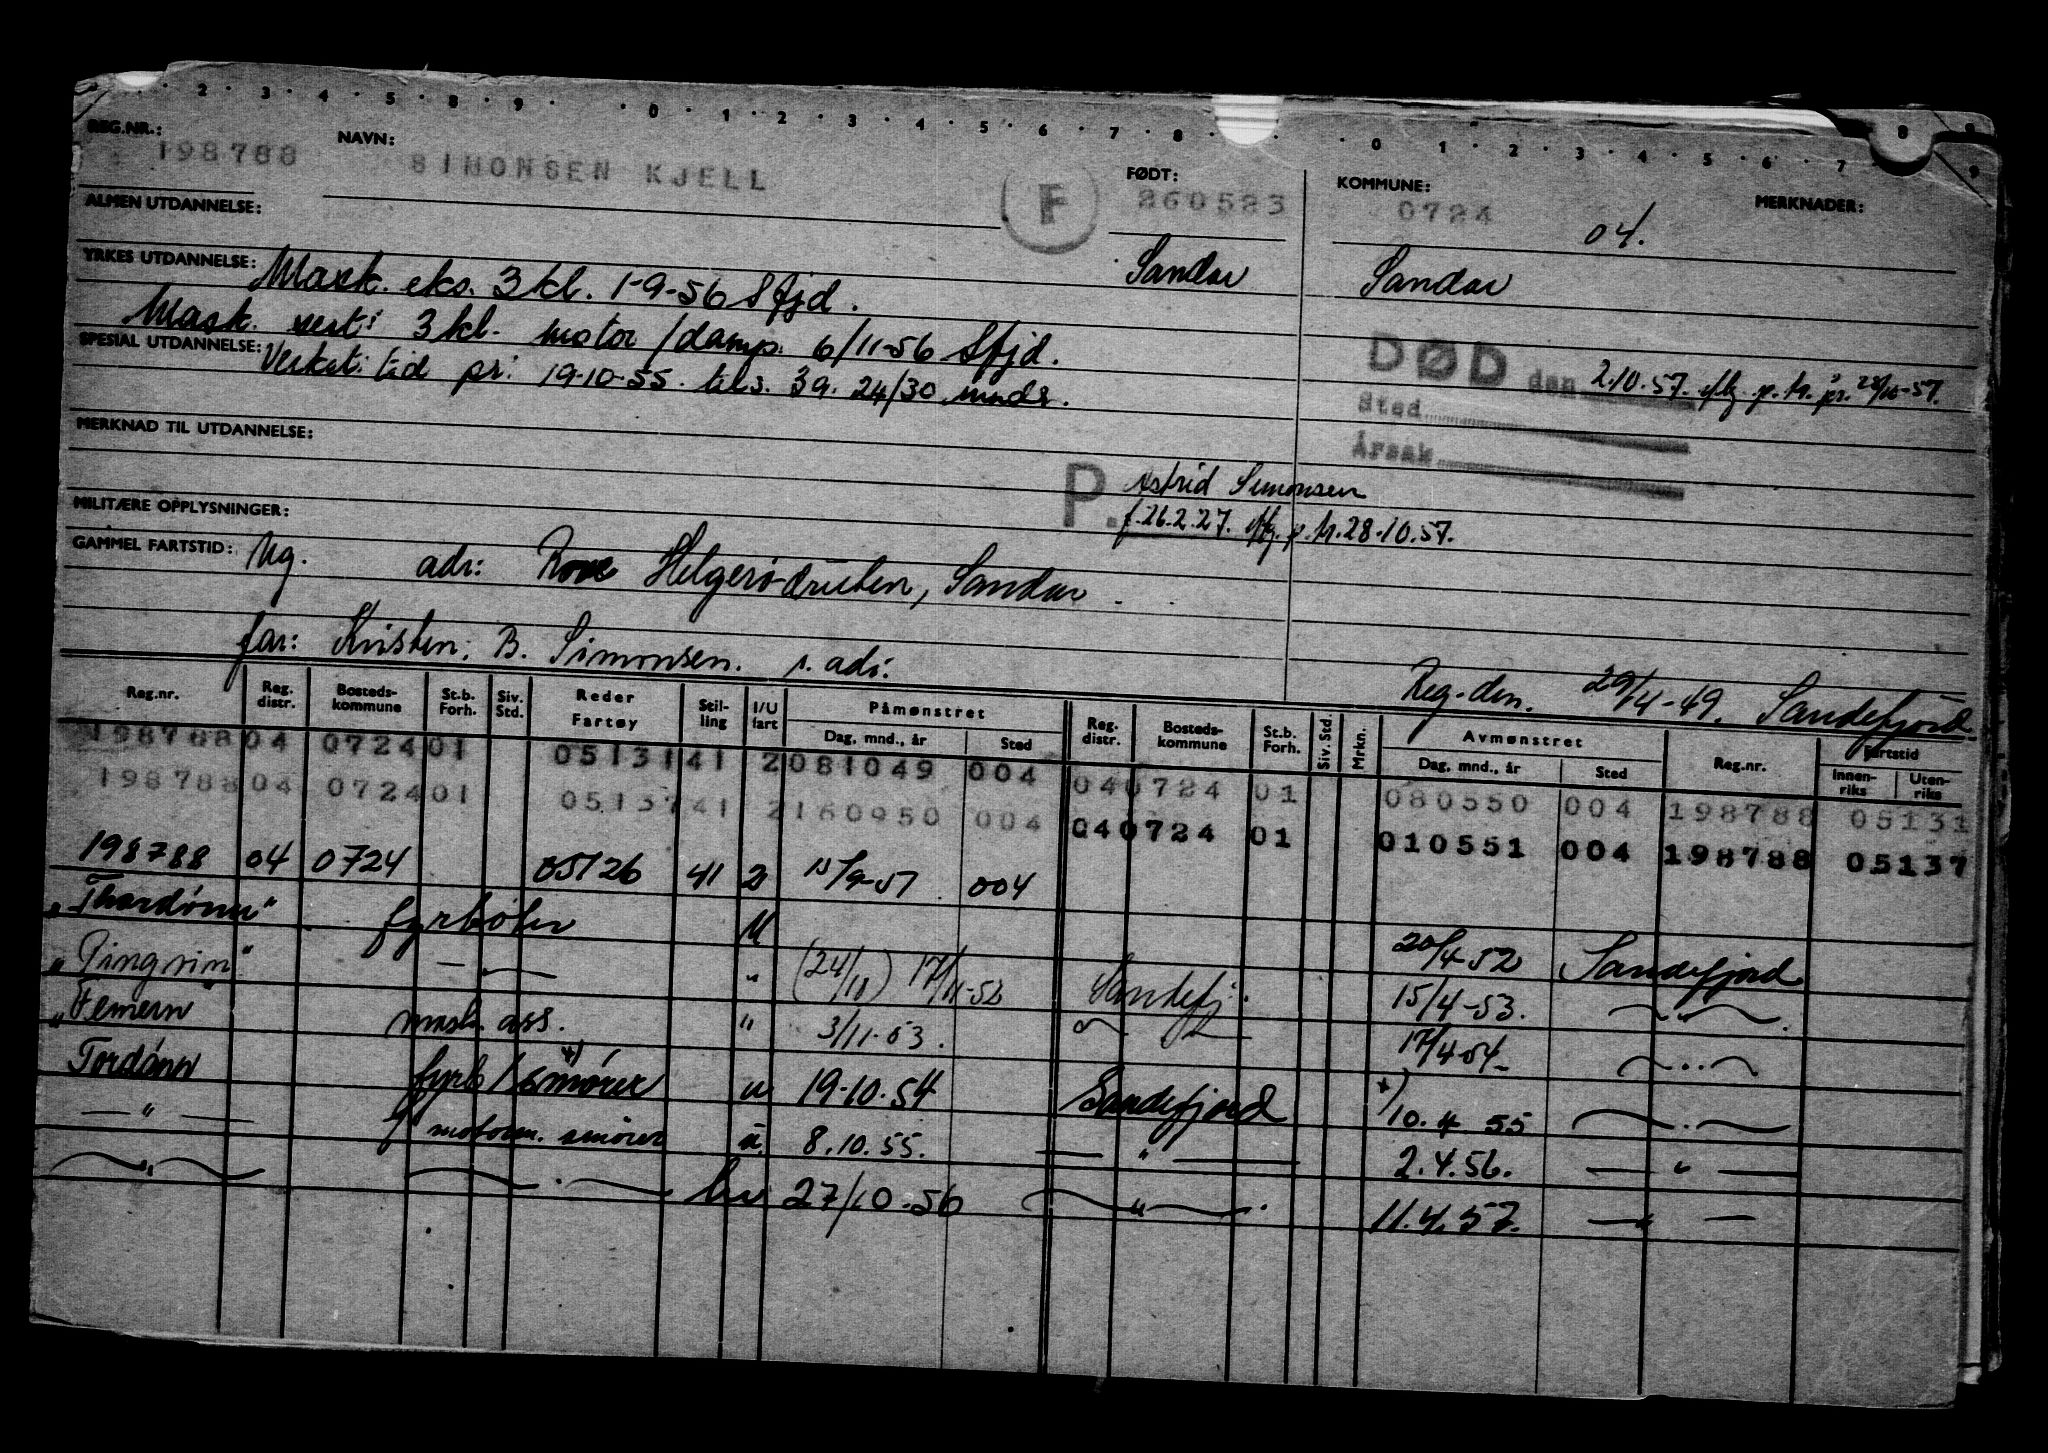 2 · 3 · 4 · 5 · 8 · 9 · · 0 · 1 · 2 · 3 · 4 · 5 · 6 · 7 · 8 · · 0 · 1 · 2 · 3 · 4 · 5 · 6 · 7 8 9
REG.NR.: 198788 NAVN: SIMONSEN KJELL F FØDT: 260523 KOMMUNE: 0724 04. MERKNADER:
ALMEN UTDANNELSE: Sandar Sandar
YRKES UTDANNELSE: Mask. eks. 3 kl. 1-9-56 Sfjd.
Mask. sert: 3 kl. motor/damp. 6/11-56 Sfjd.
DØD den 2.10.57. p. h. 28/10-57.
SPESIAL UTDANNELSE: Verkst. tid pr: 19-10-55. 3 a. 24/30 mndr.
Sted
Årsak
MERKNAD TIL UTDANNELSE:
P. Astrid Simonsen
f. 26.2.27. p. h. 28.10.57.
MILITÆRE OPPLYSNINGER:
GAMMEL FARTSTID: Ug. adr: Sandar.
far: Kristen B. Simonsen. s. adr.
Reg. den. 29/4-49. Sandefjord
Reg.nr. Reg. distr. Bosteds-kommune St.b. Forh. Siv. Std. Reder Fartøy Stil-ling I/U fart Påmønstret Dag, mnd., år Sted Reg. distr. Bosteds-kommune St.b. Forh. Siv. Std. Mrkn. Avmønstret Dag, mnd., år Sted Reg.nr. Fartstid Innen-riks Uten-riks
198788 04 0724 01 05131 41 2 081049 004 04 0724 01 080550 004 198788 05131
198788 04 0724 01 05137 41 2 160950 004 04 0724 01 010551 004 198788 05137
198788 04 0724 05126 41 2 15/9-51 004
"Thordønn" fyrbøter U 20/4 52 Sandefjord
"Pingvin" — " (24/11) 17/11-52 Sandefj. 15/4-53. — " —
"Femern" mask. ass. " 3/11-53. — " — 17/4-54 — " —
Tordønn fyrb/smører x) u 19-10-54 Sandefjord x) 10.4 55 — " —
— " — motorm. smører u 8.10.55. — " — 2.4.56. — " —
— " — — " — 27/10-56 — " — 11.4.57. — " —